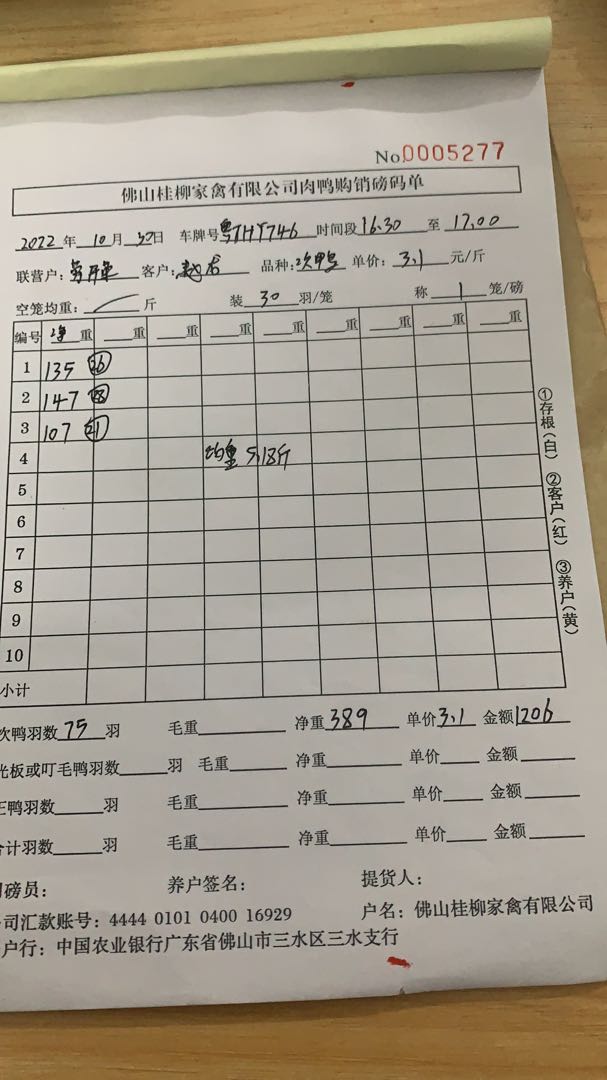 No.0005277
佛山桂柳家禽有限公司肉鸭购销磅码单
2022年10月30日 车牌号粤THT746 时间段16.30至17.00
联营户: 客户: 品种:次鸭 单价:3.1元/斤
空笼均重: 斤 装30羽/笼 称1笼/磅
编号 净重 重 重 重 重 重 重 重 重
1 135 26
2 147 28
3 107 21
4 均重 5.18斤
5
6
7
8
9
10
小计
①存根(白) ②客户(红) ③养户(黄)
次鸭羽数75羽 毛重 净重389 单价3.1 金额1206
光板或叮毛鸭羽数 羽 毛重 净重 单价 金额
正鸭羽数 羽 毛重 净重 单价 金额
合计羽数 羽 毛重 净重 单价 金额
磅员: 养户签名: 提货人:
司汇款账号:4444 0101 0400 16929 户名:佛山桂柳家禽有限公司
户行:中国农业银行广东省佛山市三水区三水支行